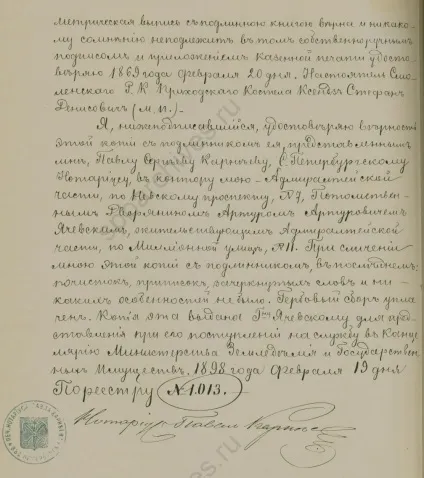 метрическая выпись съ подлинною книгою вѣрна и никако-
му сомнѣнію неподлежитъ въ томъ собственноручнымъ
подписомъ и приложеніемъ казенной печати удосто-
вѣряю 1869 года Февраля 20 дня. Настоятель Смо-
ленскаго Р. К. Приходскаго Костела Ксендзъ Стефанъ
Денисовичъ (М. П.).
Я, нижеподписавшійся, удостовѣряю вѣрность
этой копіи съ подлинникомъ ея, представленнымъ
мнѣ, Павлу Сергѣеву Карпѣеву, С. Петербургскому
Нотаріусу, въ контору мою – Адмиралтейской
части, по Невскому проспекту, № 7, Потомствен-
нымъ Дворяниномъ Артуромъ Артуровичемъ
Ячевскимъ, жительствующимъ Адмиралтейской
части, по Милліонной улицѣ, № 11. При сличеніи
мною этой копіи съ подлинникомъ, въ послѣднемъ
почистокъ, приписокъ, зачеркнутыхъ словъ и ни-
какихъ особенностей не было. Гербовый сборъ упла-
ченъ. Копія эта выдана Гну Ячевскому для пред-
ставленія при его поступленіи на службу въ Канце-
лярію Министерства Земледѣлія и Государствен-
ныхъ Имуществъ. 1898 года Февраля 19 дня
По реестру № 1.013.–
Нотаріусъ Павелъ